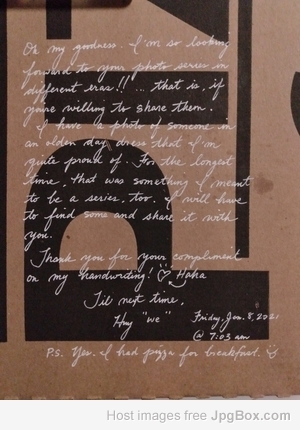 Oh my goodness. I'm so looking
forward to your photo series in
different eras!! ... that is, if
you're willing to share them.
I have a photo of someone in
an olden day dress that I'm
quite proud of. For the longest
time, that was something I meant
to be a series, too. I will have
to find some and share it with
you.
Thank you for your compliment
on my handwriting! ♡ Haha
Til next time,
"we"
Friday, Jan. 8, 2021
@ 7:03 am
P.S. Yes. I had pizza for breakfast.
Host images free JpgBox.com